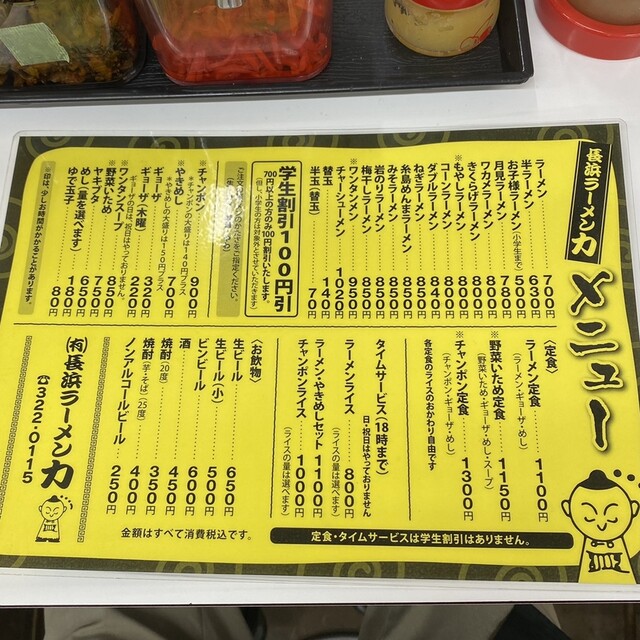 長浜ラーメン力
メニュー
ラーメン………700円
半ラーメン………630円
お子様ラーメン(小学生まで)…500円
月見ラーメン………780円
ワカメラーメン………800円
きくらげラーメン………800円
※もやしラーメン………800円
コーンラーメン………800円
ダブルラーメン………840円
ねぎラーメン………850円
糸島めんまラーメン…850円
みそラーメン………850円
岩のりラーメン………850円
梅干しラーメン………850円
※ワンタンメン………950円
チャーシューメン…1020円
替玉………140円
半玉(替玉)………70円
学生割引100円引
700円以上の方のみ100円割引いたします。
(但し、小学生の方は対象外とさせていただきます)
※チャンポン………900円
※チャンポンの大盛りは140円プラス
※やきめし………700円
※やきめしの大盛りは150円プラス
ギョーザ………320円
ギョーザ(木曜)………220円
ギョーザの日は、祝日はやっておりません。
※ワンタンスープ………850円
※野菜いため………750円
ヤキブタ………650円
めし(量を選べます)…180円
ゆで玉子………80円
※印は、少しお時間がかかることがあります。
〈定食〉
ラーメン定食………1100円
(ラーメン・ギョーザ・めし)
※野菜いため定食…1150円
(野菜いため・ギョーザ・めし・スープ)
※チャンポン定食…1300円
(チャンポン・ギョーザ・めし)
各定食のライスのおかわり自由です
タイムサービス(18時まで)
日・祝日はやっておりません
ラーメンライス………800円
(ライスの量は選べます)
ラーメン・やきめしセット…1100円
チャンポンライス………1000円
(ライスの量は選べます)
〈お飲物〉
生ビール………650円
生ビール(小)………500円
ビンビール………600円
酒………450円
焼酎(20度)………350円
焼酎(芋・そば)(25度)…400円
ノンアルコールビール…250円
㈲長浜ラーメン力
☎322-0115
金額はすべて消費税込です。
定食・タイムサービスは学生割引はありません。